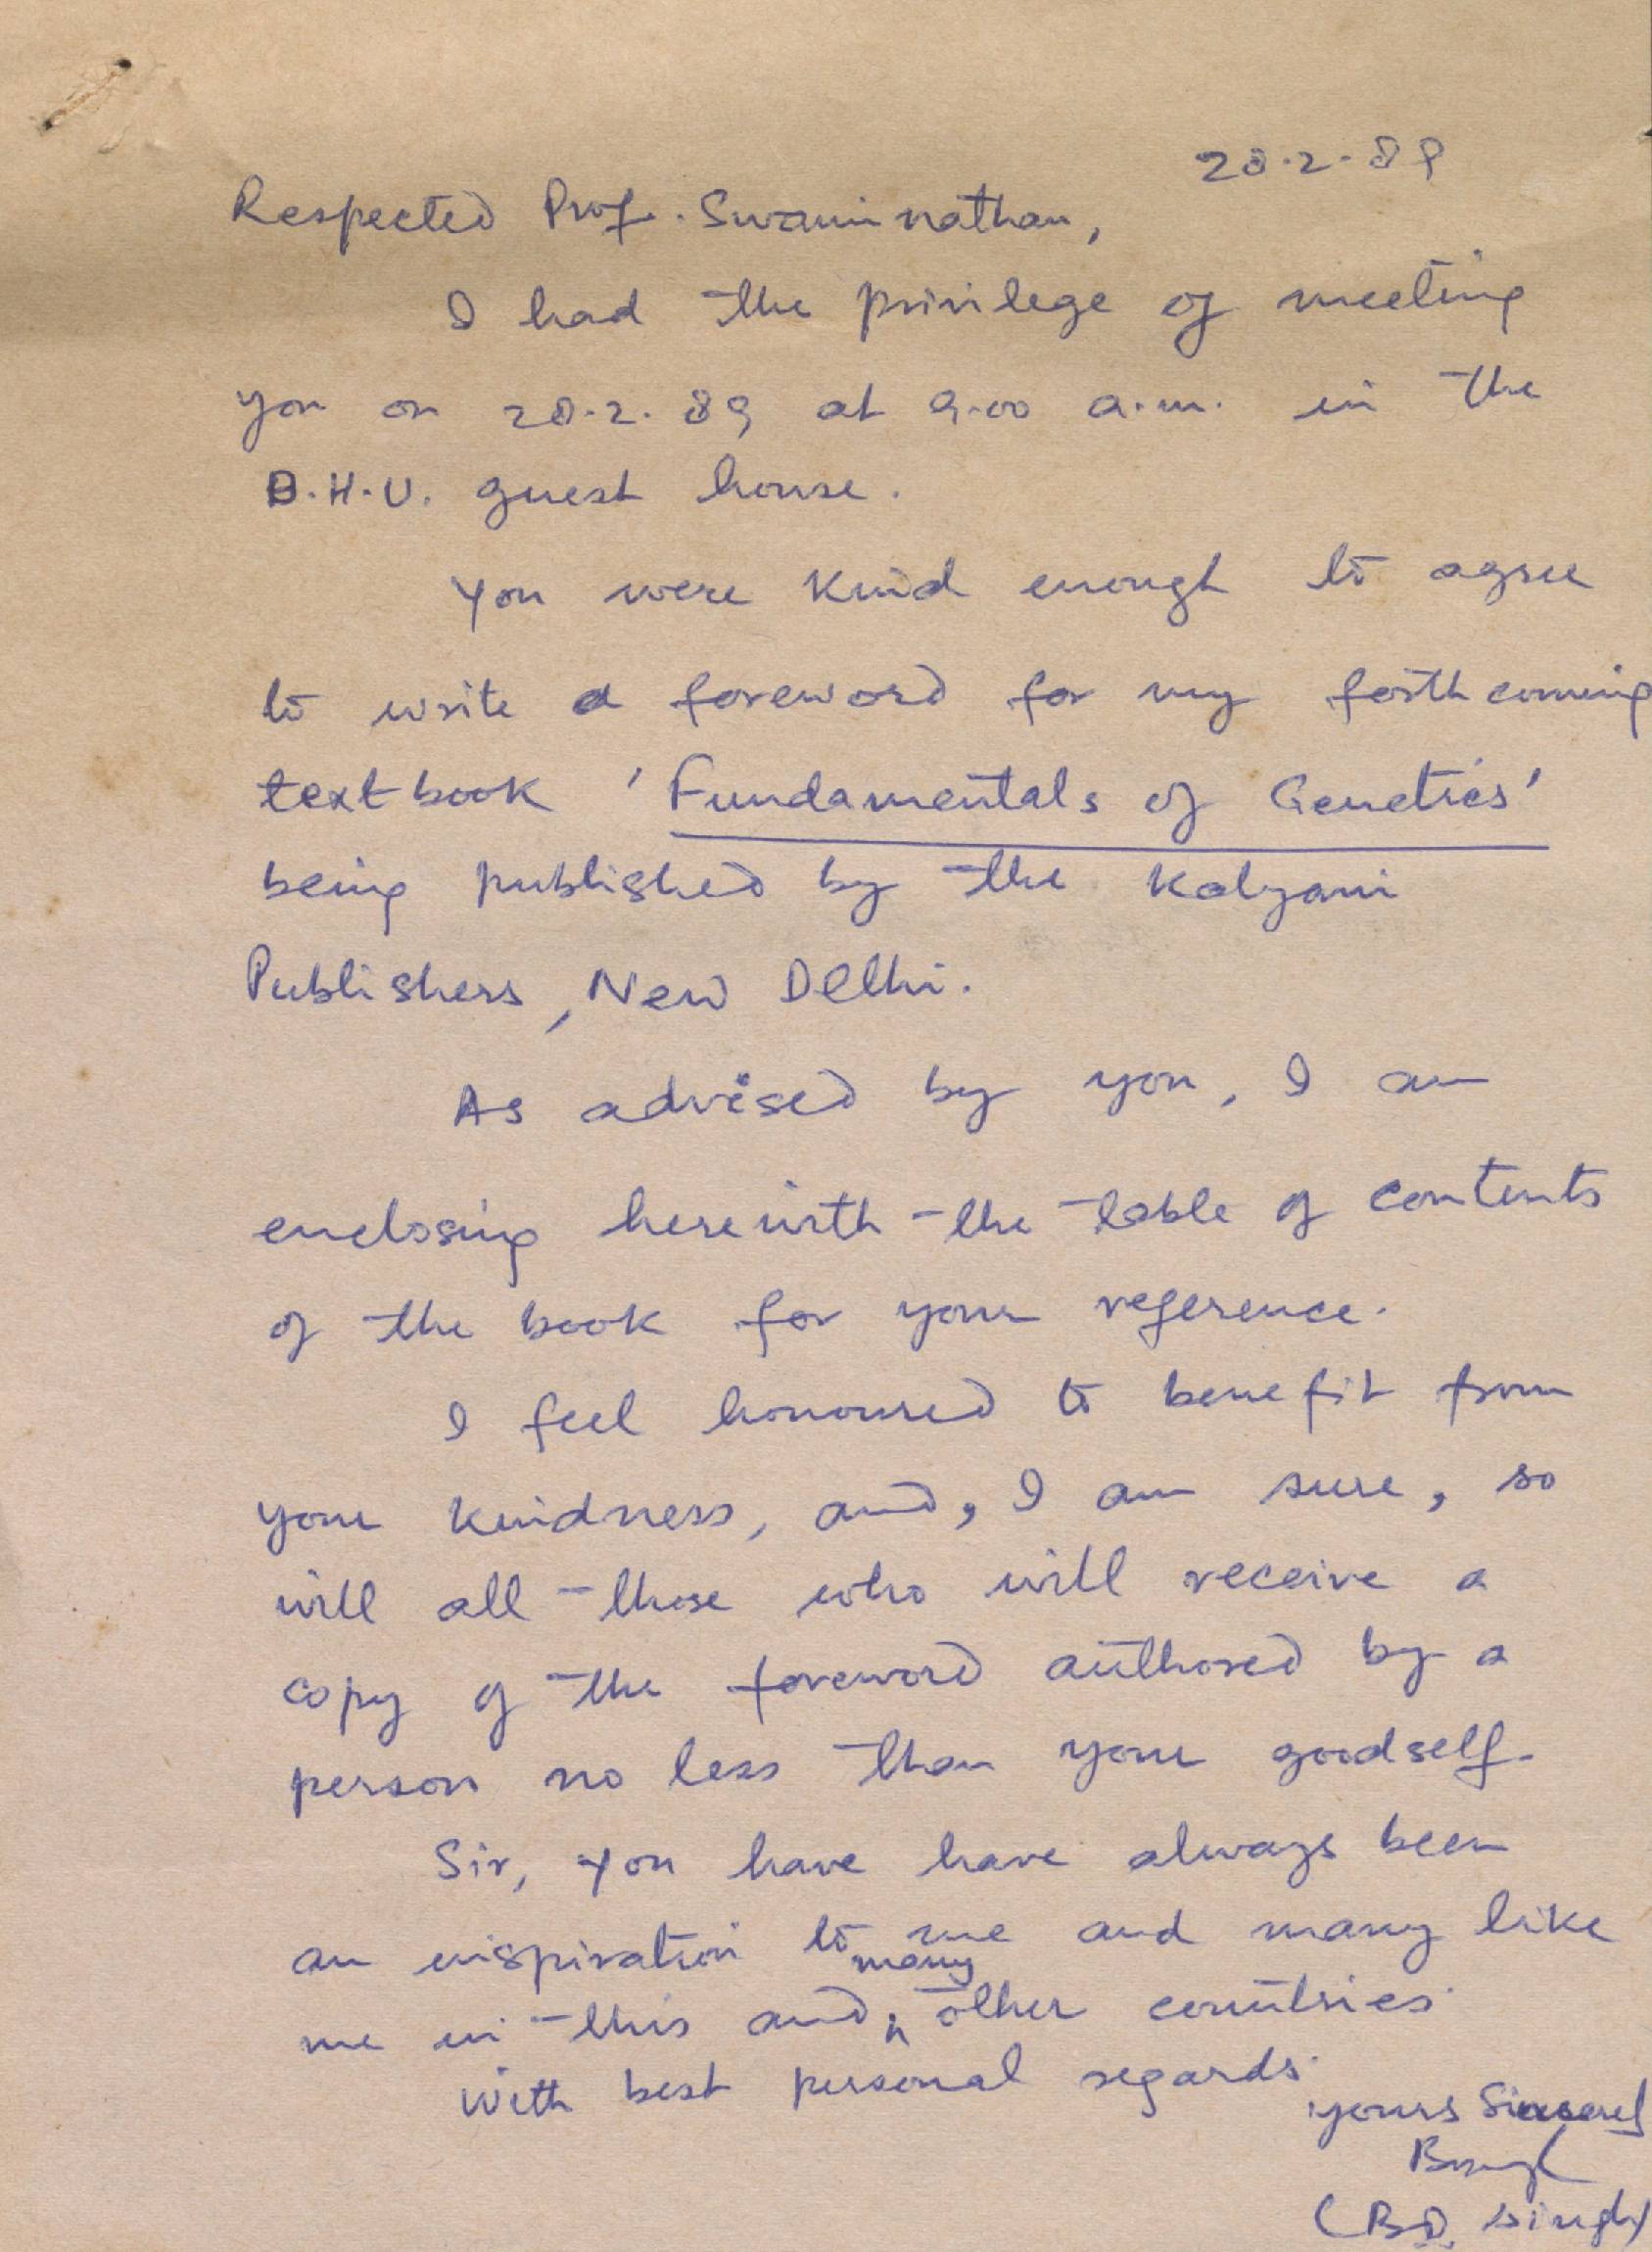 28.2.89
Respected Prof. Swaminathan,
I had the privilege of meeting
you on 28.2.89 at 9.00 a.m. in the
B.H.U. guest house.
You were kind enough to agree
to write a foreword for my forthcoming
textbook 'Fundamentals of Genetics'
being published by the Kalyani
Publishers, New Delhi.
As advised by you, I am
enclosing herewith the table of contents
of the book for your reference.
I feel honoured to benefit from
your kindness, and, I am sure, so
will all those who will receive a
copy of the foreword authored by a
person no less than your goodself.
Sir, you have have always been
an inspiration to me and many like
me in this and many other countries.
With best personal regards.
yours Sincerely
(BD Singh)